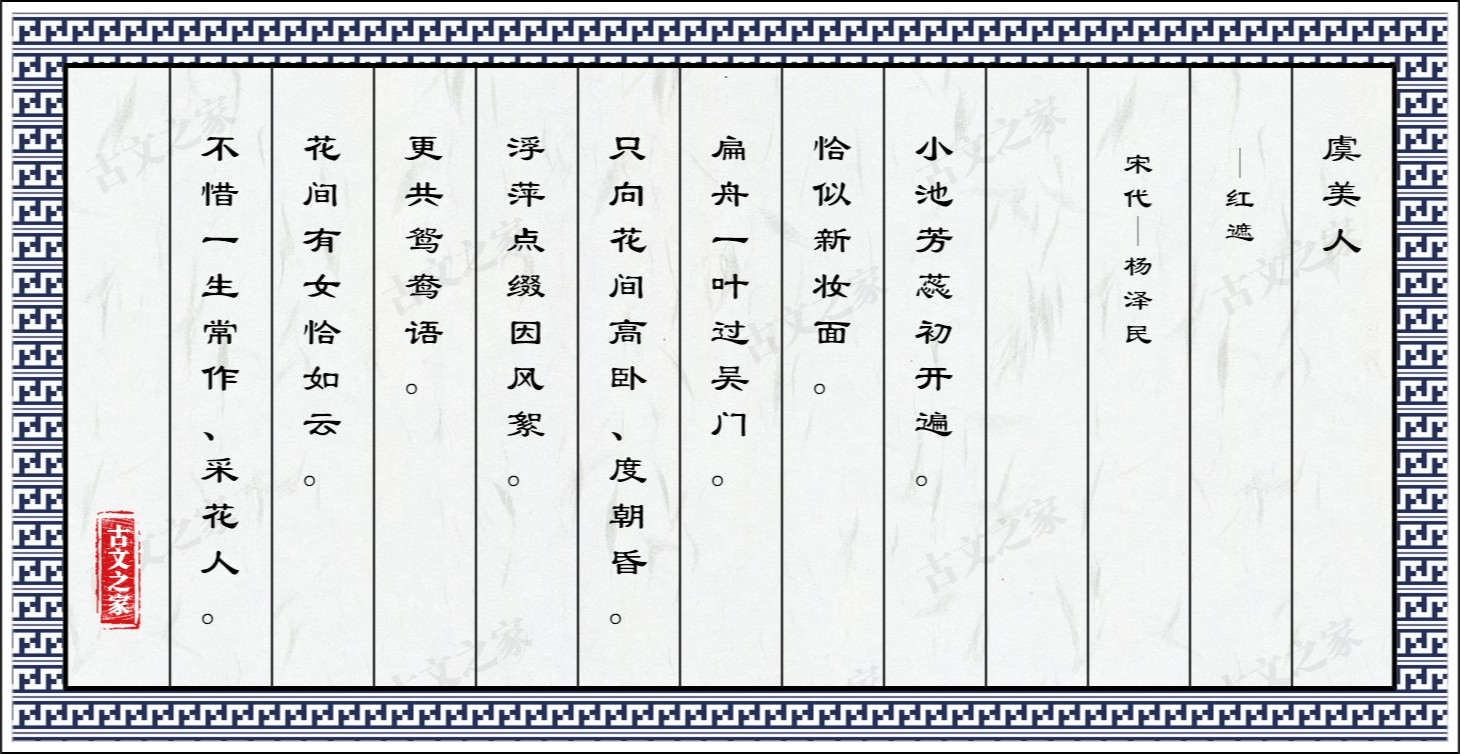 虞美人
—红遮
宋代—杨泽民
小池芳蕊初开遍。
恰似新妆面。
扁舟一叶过吴门。
只向花间高卧、度朝昏。
浮萍点缀因风絮。
更共鸳鸯语。
花间有女恰如云。
不惜一生常作、采花人。
古文之家